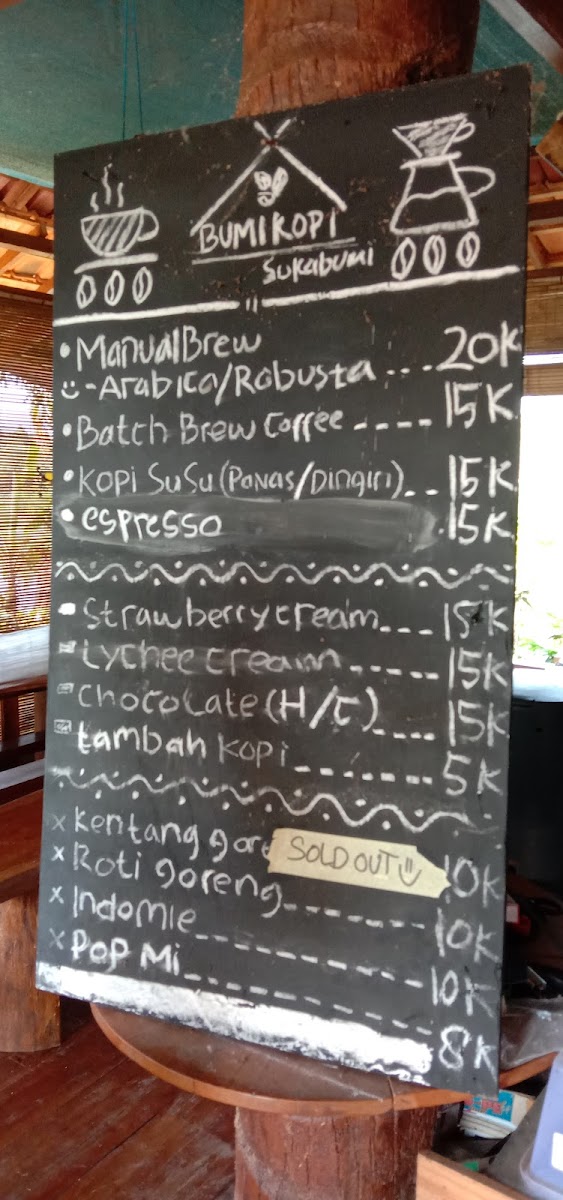 BUMIKOPI
Sukabumi
• Manual Brew
- Arabica/Robusta ... 20K
• Batch Brew Coffee ---- 15K
• Kopi SuSu (Panas/Dingin).. 15K
• espresso 15K
Strawberry cream --- 15K
Lychee cream ----- 15K
Chocolate (H/C) ---- 15K
tambah Kopi ------ 5K
x Kentang gore 10K
SOLD OUT
x Roti goreng ------ 10K
x Indomie --------- 10K
x POP Mi --------- 8K